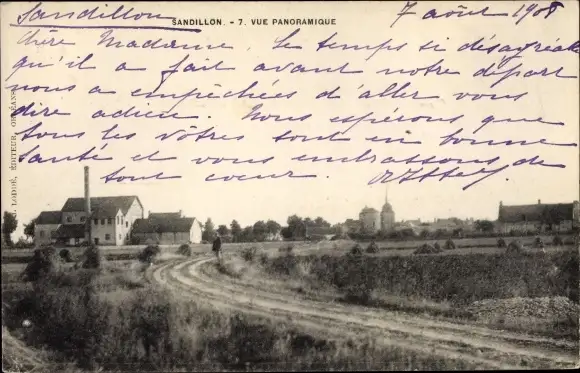 Sandillon
7 août 1908
SANDILLON. - 7. VUE PANORAMIQUE
Chère Madame. Le temps si désagréable
qu'il a fait avant notre départ
nous a empêchées d'aller vous
dire adieu. Nous espérons que
tous les vôtres sont en bonne
santé et vous embrassons de
tout cœur.
LODDÉ, ÉDITEUR, ORLÉANS